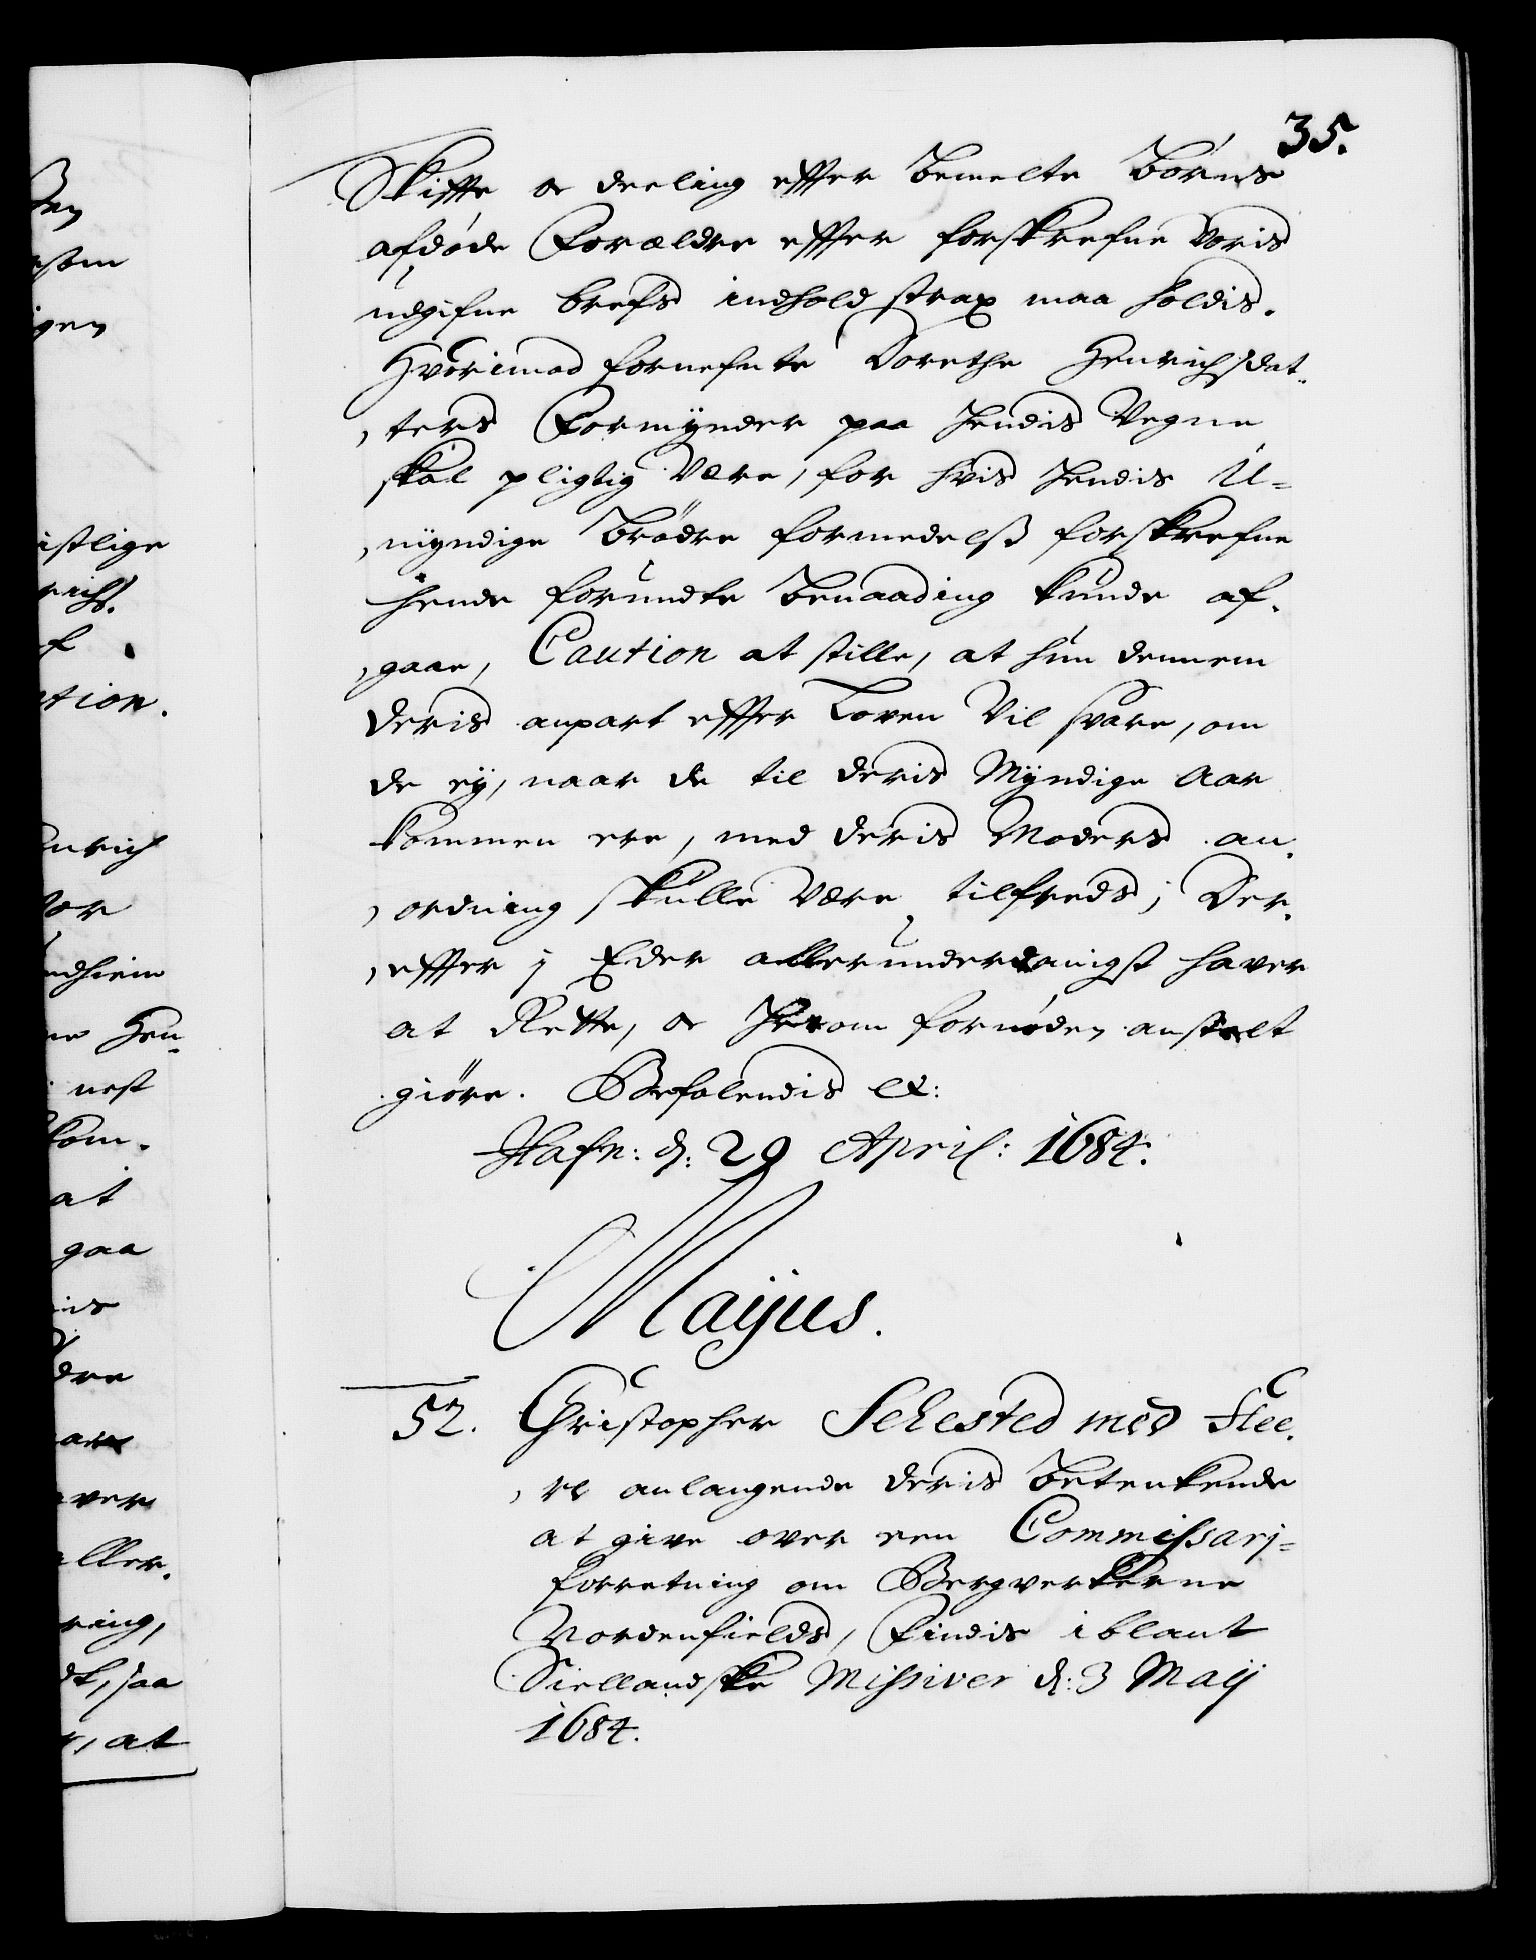 35.
Skiffte oc deeling effter bemelte Børns
afdøde Forældre effter forskrefne Voris
udgifne brefs indhold strax maa holdis.
Hvorimod fornefnte Dorethe Henrichsdat-
ters Formynder paa hendis Vegne
skal pligtig Være, for hvis hendis U-
myndige Brødre formedelst forskrefne
hende forundte benaading kunde af-
gaae, Caution at stille, at hun dennem
deris anpart effter Loven Vil svare, om
de ey, naar de til deris Myndige Aar
kommen ere, med deris Moders an-
ordning skulle Være tilfreds; Der-
effter j Eder allerunderdanigst haver
at Rette, oc herom fornøden anstalt
giøre. Befalendis etc:
Hafn: d: 29 April: 1684.
Maijus.
52. Christopher Sehested med flee-
re anlangende deris betenkende
at give over een Commissarj-
forretning om Bergverkerne
Nordenfields, findis iblant
Siellandske Missiver d: 3 Maij
1684.